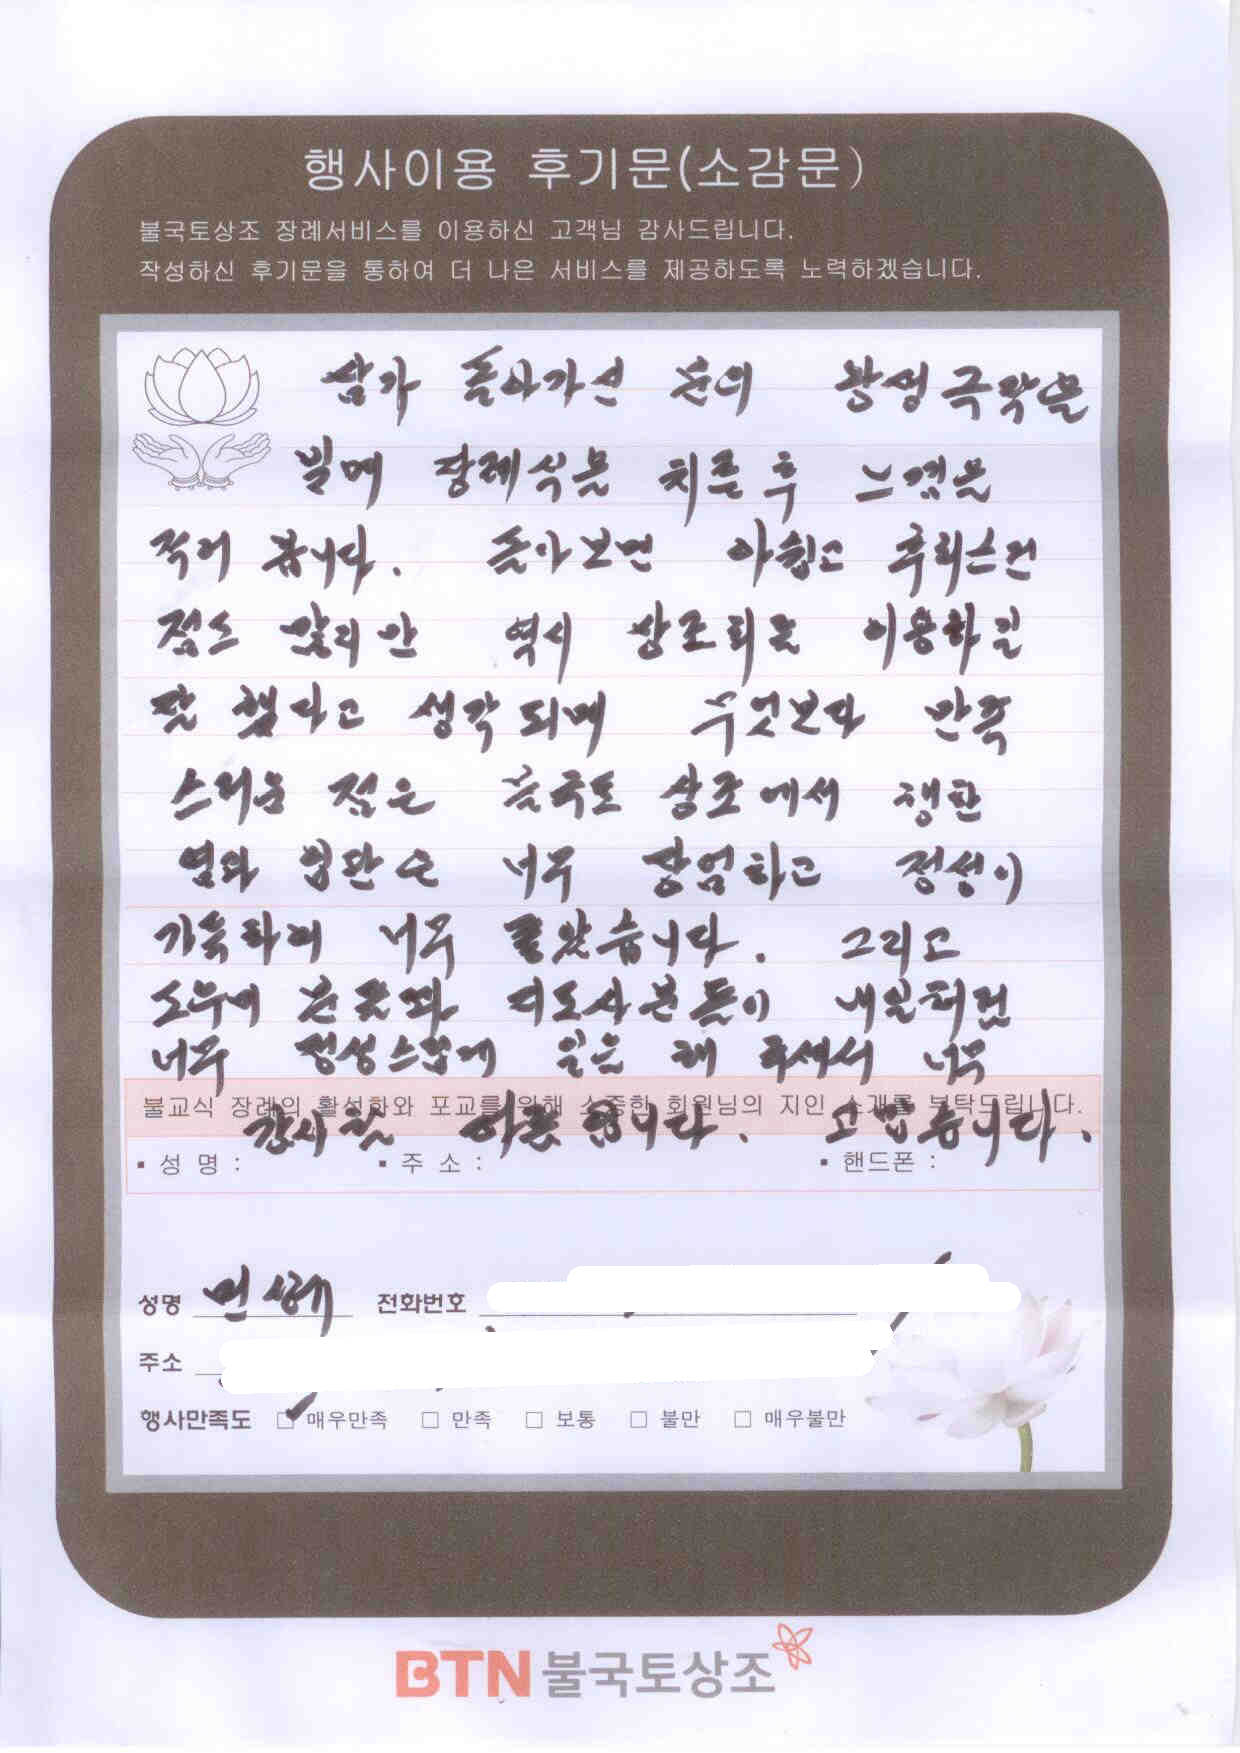 행사이용 후기문(소감문)
불국토상조 장례서비스를 이용하신 고객님 감사드립니다.
작성하신 후기문을 통하여 더 나은 서비스를 제공하도록 노력하겠습니다.
삼가 돌아가신 분의 왕생극락을
빌며 장례식을 치른후 느낌을
적어 봅니다. 돌아보면 아쉽고 후회스런
점도 많지만 역시 상조회를 이용하길
잘 했다고 생각되며 무엇보다 만족
스러운 점은 불국토 상조에서 행한
염과 입관은 너무 장엄하고 정성이
가득하여 너무 좋았습니다. 그리고
도우미 분들과 지도사분들이 내일처럼
너무 정성스럽게 일을 해 주셔서 너무
불교식 장례의 활성화와 포교를 위해 소중한 회원님의 지인 소개를 부탁드립니다.
감사할 따름입니다. 고맙습니다.
▪ 성 명 : ▪ 주 소 : ▪ 핸드폰 :
성명 민 전화번호
주소
행사만족도 □ 매우만족 □ 만족 □ 보통 □ 불만 □ 매우불만
BTN 불국토상조